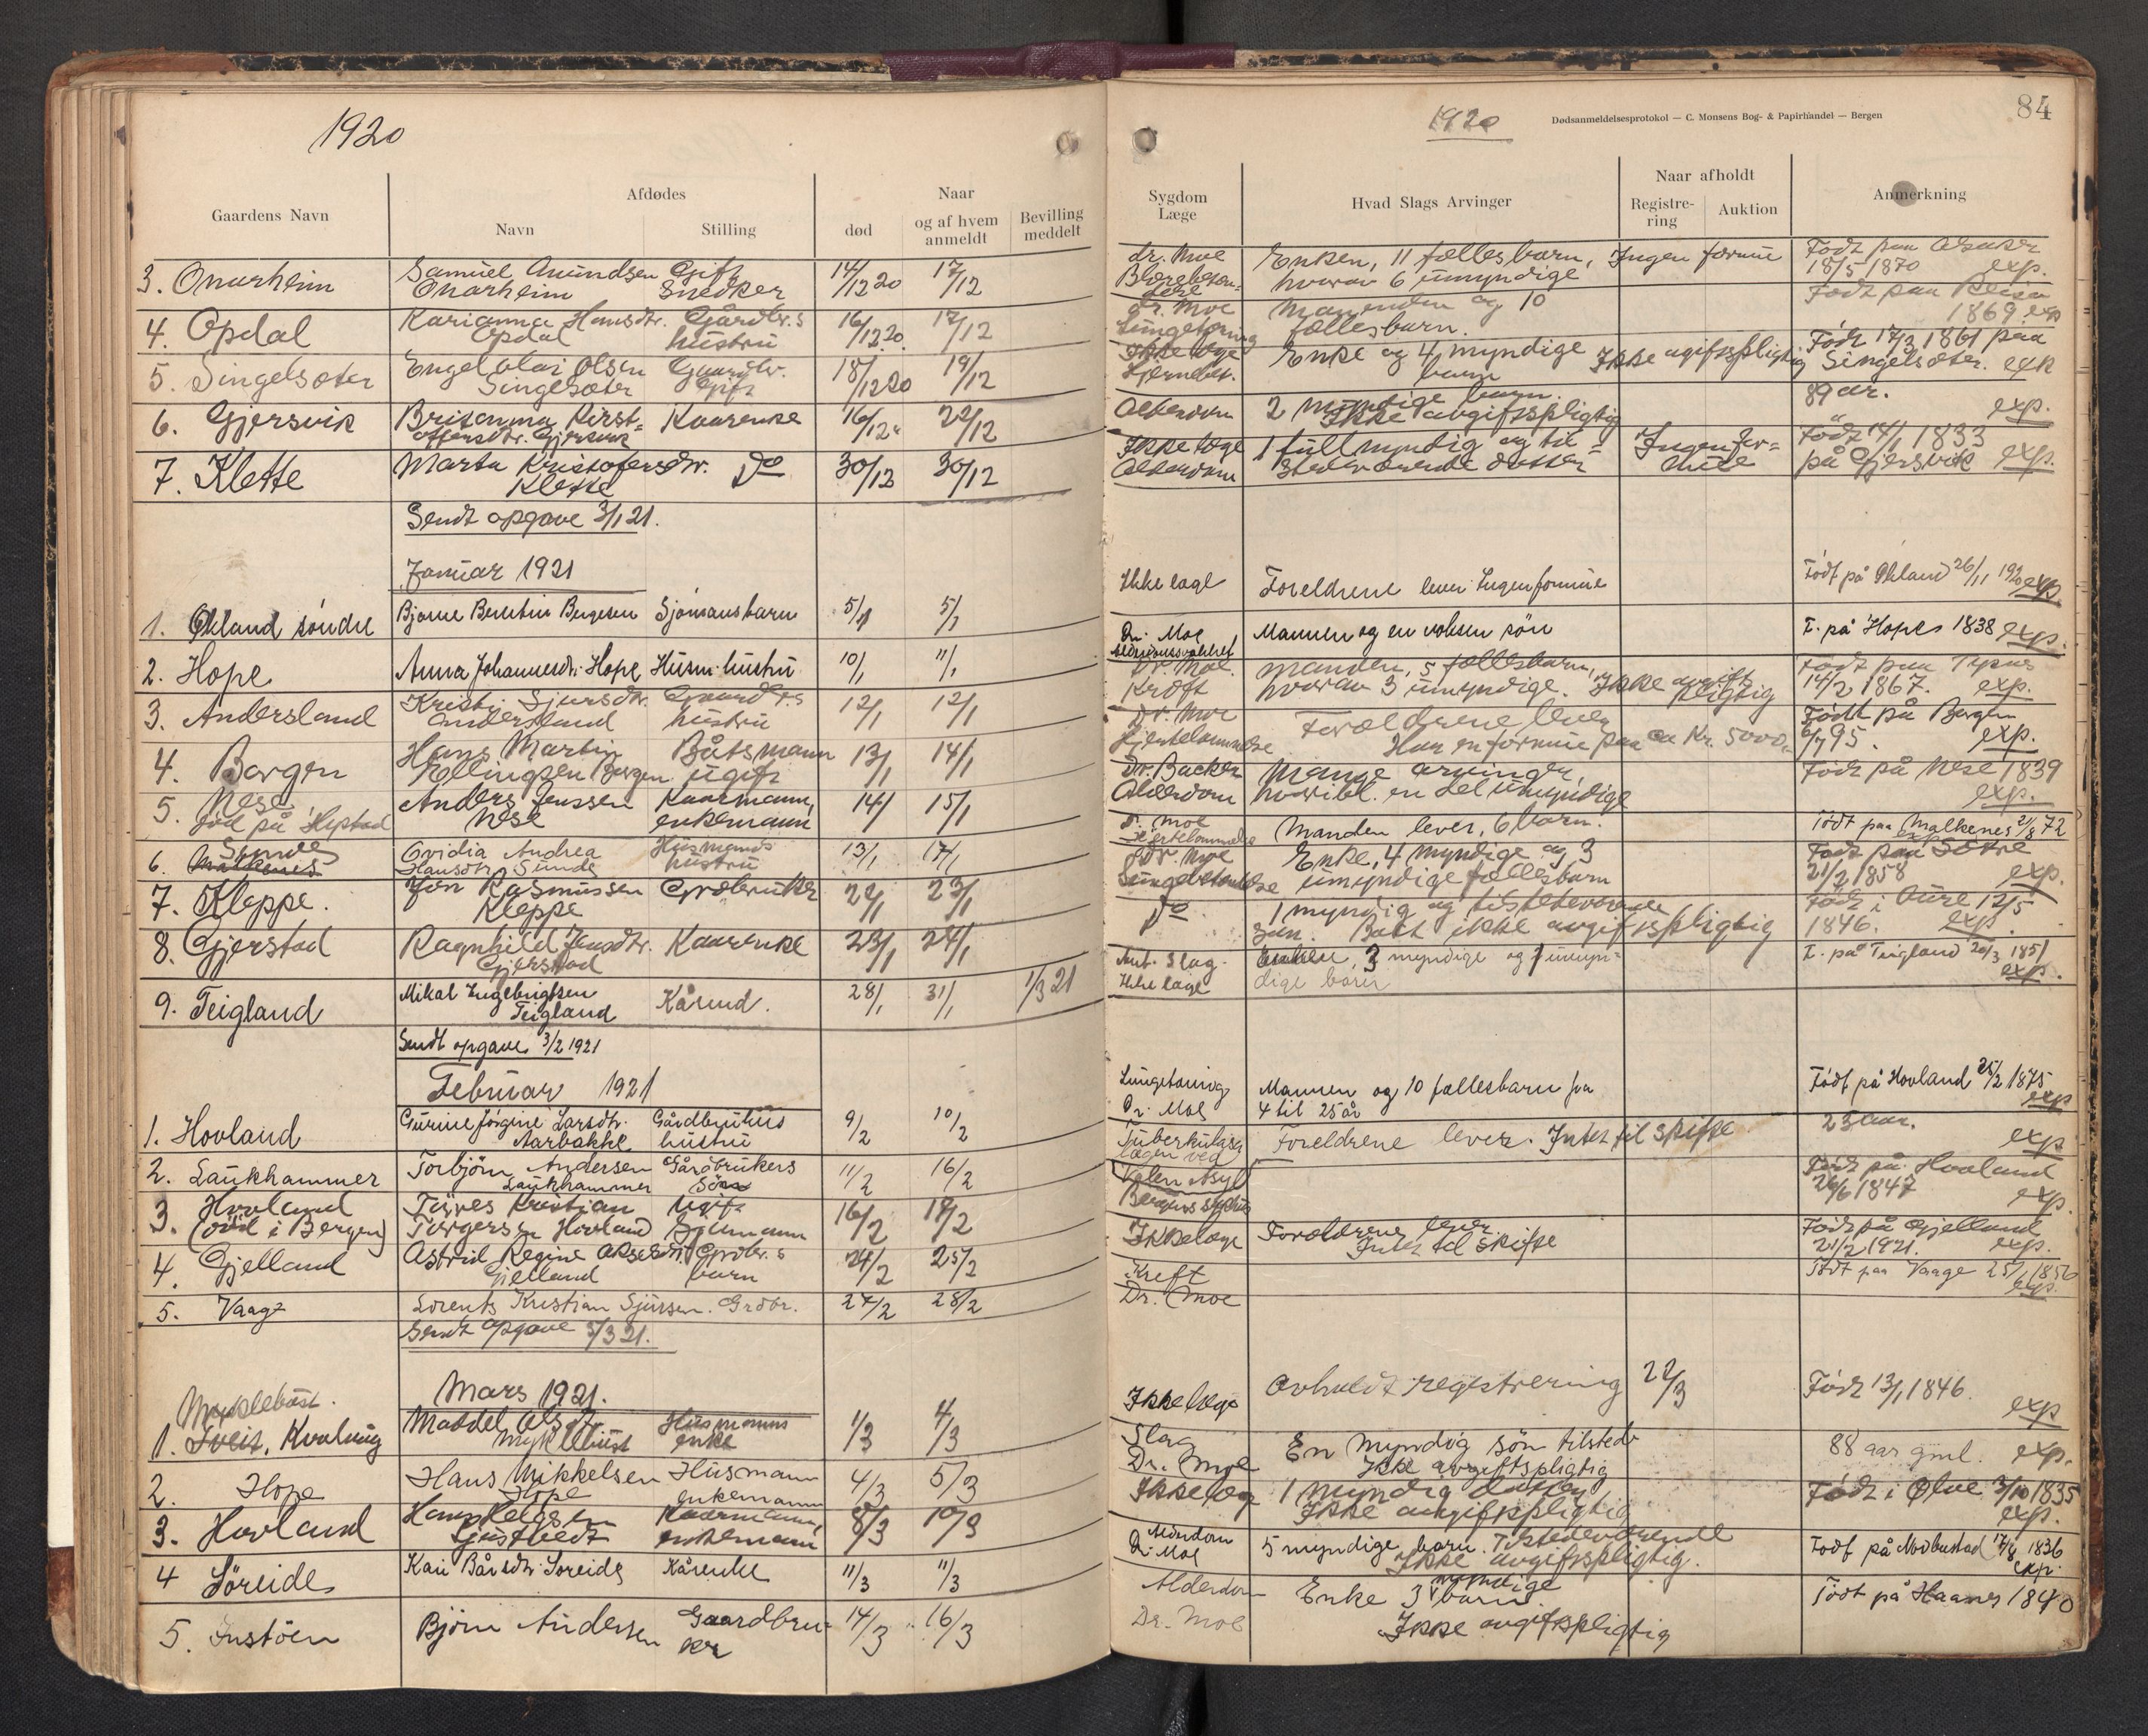 1920
Gaardens Navn
Afdødes
Navn
Stilling
Naar
død
og af hvem anmeldt
Bevilling meddelt
3. Onarheim Samuel Amundsen Gift 14/12 20 17/12
Onarheim Snedker
4. Opdal Karianna Hansdtr. Gårdbr.s 16/12 20 17/12
Opdal hustru
5. Singelsæter Engel Olai Olsen Gaardbr. 18/12 20 19/12
Singelsæter Gift
6. Gjersvik Britanna Kirst= Kaarenke 16/12 22/12
offersdtr. Gjersvik
7. Klette Marta Kristofersdtr. Do 30/12 30/12
Klette
Sendt opgave 3/1 21.
Januar 1921
1. Økland söndre Bjarne Berntin Bergesen Sjömansbarn 5/1 5/1
2. Hope Anna Johannesdtr. Hope Husm. hustru 10/1 11/1
3. Andersland Kristi Sjursdtr. Gaardbr.s 12/1 12/1
Andersland hustru
4. Bergen Hans Martin Båtsmann 13/1 14/1
Ellingsen Bergen ugift
5. Nese Anders Jenssen Kaarmann, 14/1 15/1
död på Heptad Nese enkemann
Sunde
6. Malkenes Ovidia Andrea Husmands 13/1 17/1
Hansdtr Sunde hustru
7. Kleppe. Jon Rasmussen Grdbruker 22/1 23/1
Kleppe
8. Gjerstad Ragnhild Jensdtr. Kaarenke 23/1 24/1
Gjerstad
9. Teigland Mikal Ingebrigtsen Kårmd. 28/1 31/1 1/3 21
Teigland
Sendt opgave 3/2 1921
Februar 1921
1. Hovland Gurine Jørgine Larsdtr. Gårdbrukers 9/2 10/2
Aarbakke hustru
2. Laukhammer Torbjörn Andersen Gårdbrukers 11/2 16/2
Laukhammer Sön
3. Hovland Kristian Ugift 16/2 18/2
(död i Bergen) Torgersen Hovland Sjömann
4. Gjelland Astrid Regine Akselsdtr. Grdbr.s 24/2 25/2
Gjelland barn
5. Vaage Lorents Kristian Sjursen. Grdbr. 27/2 28/2
Sendt opgave 5/3 21.
Mars 1921.
Myklebust.
1. Tveit, Kvaling Maddel Olsdtr. Husmanns 1/3 4/3
Myklebust enke
2. Hope Hans Mikkelsen Husmann 4/3 5/3
Hope enkemann
3. Hovland Hans Helgesen Kaarmann, 8/3 10/3
enkemann
4 Söreide Kari Bårsdtr. Soreide Kårenke 11/3 11/3
5. Instöen Björn Andersen Gaardbru= 14/3 16/3
ker
1920
Dødsanmeldelsesprotokol — C. Monsens Bog- & Papirhandel — Bergen
84
Sygdom
Læge
Hvad Slags Arvinger
Naar afholdt
Registre-
ring
Auktion
Anmerkning
dr. Moe Enken, 11 fællesbarn, Ingen formue Født paa
hvorav 6 umyndige 18/5 1870 exp.
dr. Moe Manden og 10 Født paa
fællesbarn. 1869. exp
Ikke læge Enke og 4 myndige Ikke avgiftspligtig Født 17/3 1861 paa
Hjernebet. barn Singelsæter. exp
Alderdom 2 myndige barn. 89 år.
Ikke avgiftspligtig exp.
Ikke læge 1 fullmyndig og til= Ingen for= Født 14/1 1833
Alderdom stedeværende datter mue på Gjersvik exp.
Ikke læge Foreldrene lever. Ingen formue Född på Økland 26/11 1920 exp.
Dr. Moe Mannen og en voksen sön F. på Hope 1838 exp.
Alderdomssvakhet
Dr. Moe Manden, 5 fællesbarn, Født paa Tysnes
Kræft hvorav 3 umyndige. Ikke avgiftspligtig 14/2 1867. exp.
Dr. Moe Foreldrene lever Født på Bergen
Hjertelammelse Han en formue paa ca Kr. 5000,- 6/7 95. exp.
Dr. Backer Mange arvinger, Född på Nese 1839
Alderdom hvoribl. en del umyndige exp.
Dr. Moe Manden lever, 6 barn. Født paa Malkenes 2/8 72
Hjertelammelse exp
Dr. Moe Enke, 4 myndige og 3 Født paa
Lungebetændelse umyndige fællesbarn 21/2 1858 exp.
Do 1 myndig og tilstedeværende Född i Ølve 12/5
sön. Boet ikke avgiftspligtig 1846. exp.
Ant. Slag Enken, 3 myndige og 1 umyn= F. på Teigland 20/3 1851
Ikke læge dige barn exp.
Lungetæring Mannen og 10 fællesbarn fra Född på Hovland 25/2 1875
Dr. Moe 4 til 25 år exp
Tuberkulose Foreldrene lever. Intet til skifte 23 aar.
lægen ved exp
Valen Asyl Född på Hovland
Bergens sykehus 26/6 1847 exp.
Ikke læge Foreldrene lever Född på Gjelland
Intet til skifte 21/2 1921. exp.
Kreft Född paa Vaage 25/1 1856
Dr. Moe exp.
Ikke læge Avholdt registrering 22/3 Född 13/1 1846.
exp
Slag En myndig sön tilstede 88 aar gml. exp.
Dr. Moe Ikke avgiftspligtig
Ikke læge 1 myndig datter Född i Ølve 3/10 1835
Ikke avgiftspligtig exp.
Alderdom 5 myndige barn. Tilstedeværende Född på Nodbustad 17/8 1836
Dr. Moe Ikke avgiftspligtig. exp.
Alderdom Enke 3 myndige barn. Född på Haanes 1840
Dr. Moe Ikke avgiftspligtig